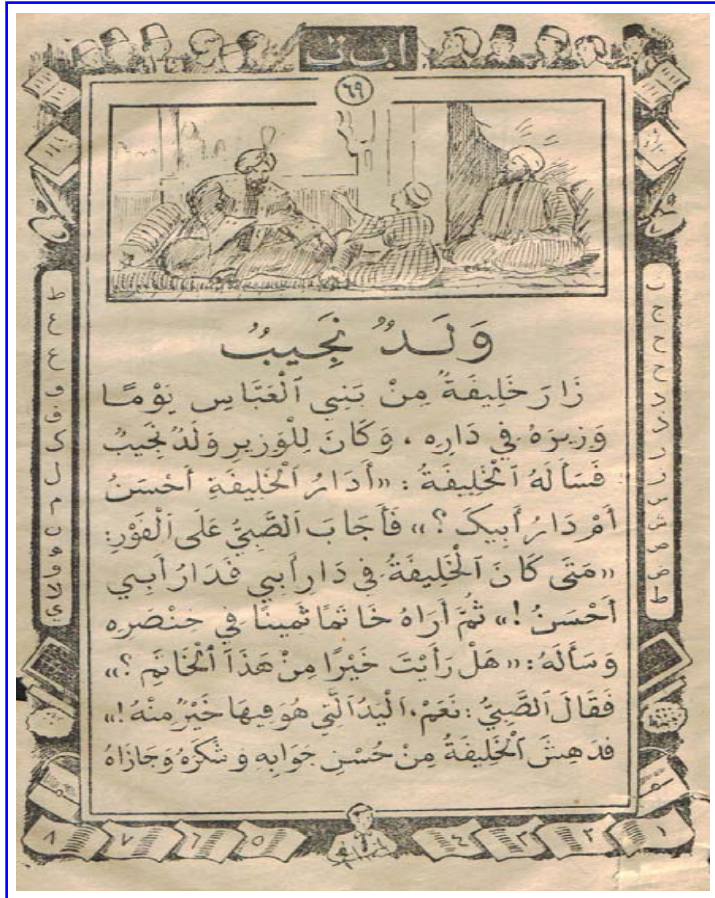 ا ب ت
٦٩
وَلَدٌ نَجِيبٌ
زَارَ خَلِيفَةٌ مِنْ بَنِي ٱلْعَبَّاسِ يَوْمًا
وَزِيرَهُ فِي دَارِهِ ، وَكَانَ لِلْوَزِيرِ وَلَدٌ نَجِيبٌ
فَسَأَلَهُ ٱلْخَلِيفَةُ : «أَدَارُ ٱلْخَلِيفَةِ أَحْسَنُ
أَمْ دَارُ أَبِيكَ ؟» فَأَجَابَ ٱلصَّبِيُّ عَلَى ٱلْفَوْرِ:
«مَتَى كَانَ ٱلْخَلِيفَةُ فِي دَارِ أَبِي فَدَارُ أَبِي
أَحْسَنُ !» ثُمَّ أَرَاهُ خَاتَمًا ثَمِينًا فِي خِنْصَرِهِ
وَسَأَلَهُ : «هَلْ رَأَيْتَ خَيْرًا مِنْ هَذَا ٱلْخَاتَمِ ؟»
فَقَالَ ٱلصَّبِيُّ : نَعَمْ، ٱلْيَدُ ٱلَّتِي هُوَ فِيهَا خَيْرٌ مِنْهُ !»
فَدَهِشَ ٱلْخَلِيفَةُ مِنْ حُسْنِ جَوَابِهِ وَشَكَرَهُ وَجَازَاهُ
١ ٢ ٣ ٤ ٥ ٦ ٧ ٨